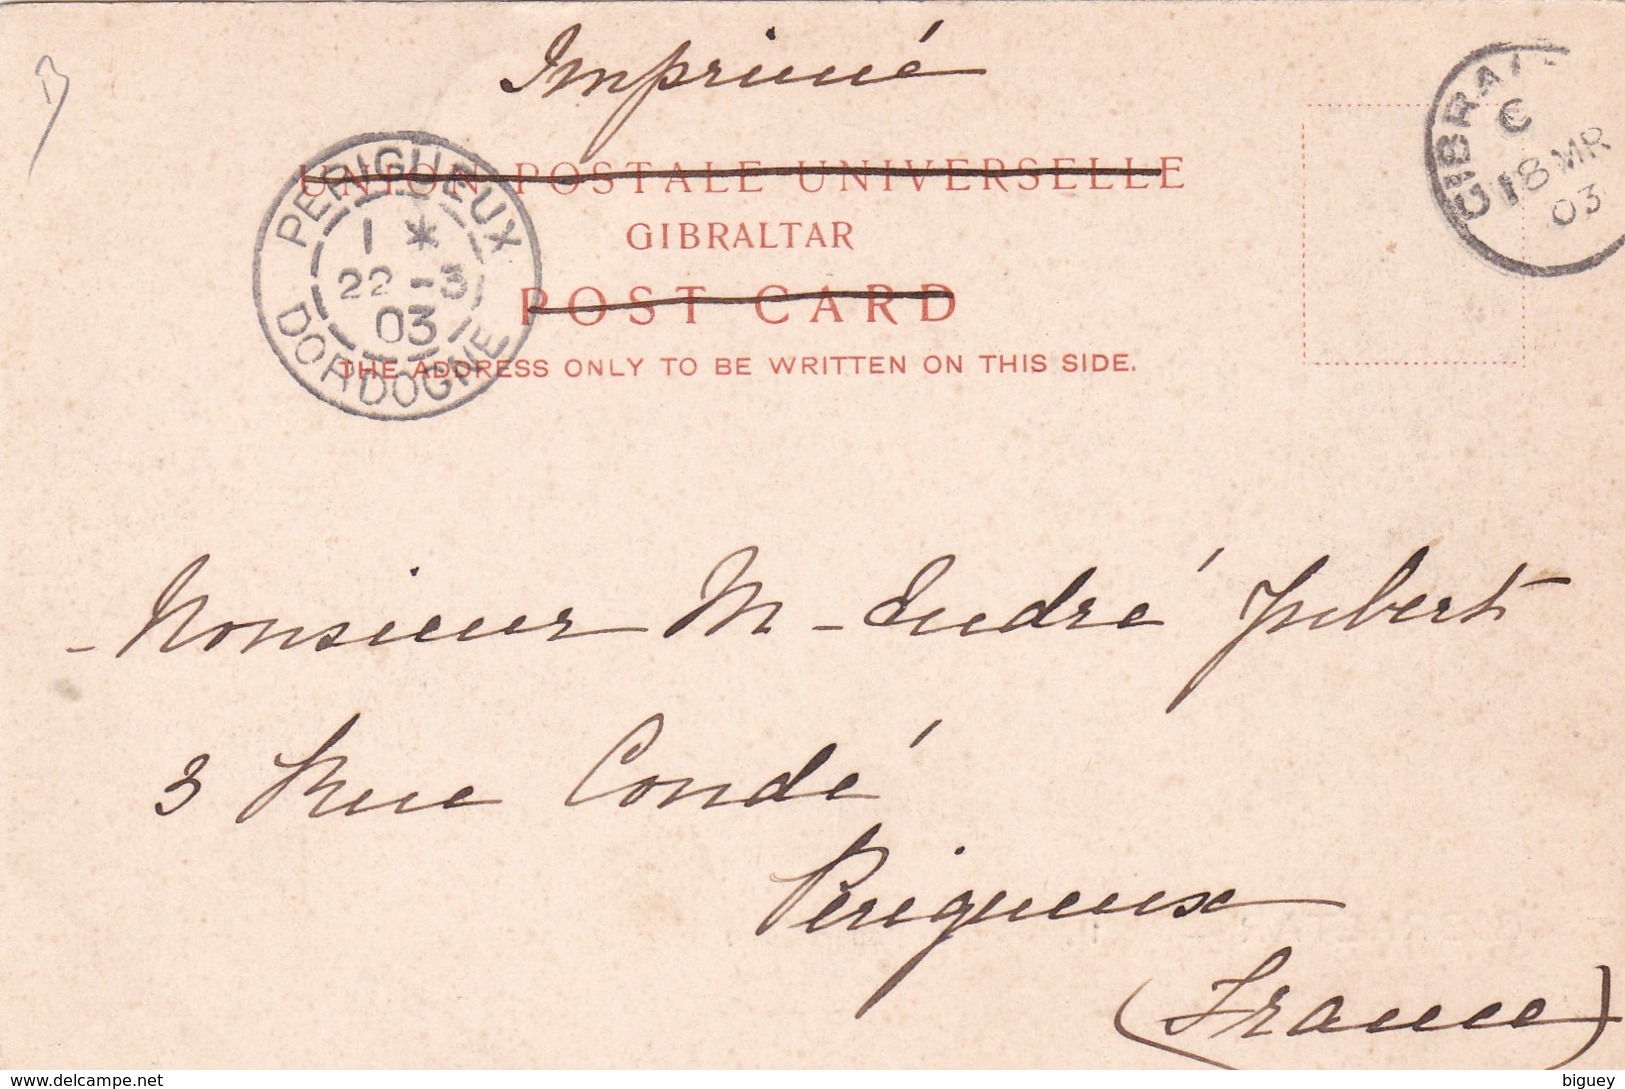 Imprimé
UNION POSTALE UNIVERSELLE
GIBRALTAR
POST CARD
THE ADDRESS ONLY TO BE WRITTEN ON THIS SIDE.
PERIGUEUX
1 *
22 - 3
03
DORDOGNE
GIBRAL
C
18 MR
03
- Monsieur M - André Jubert
3 Rue Condé
Périgueux
(France)
www.delcampe.net
biguey